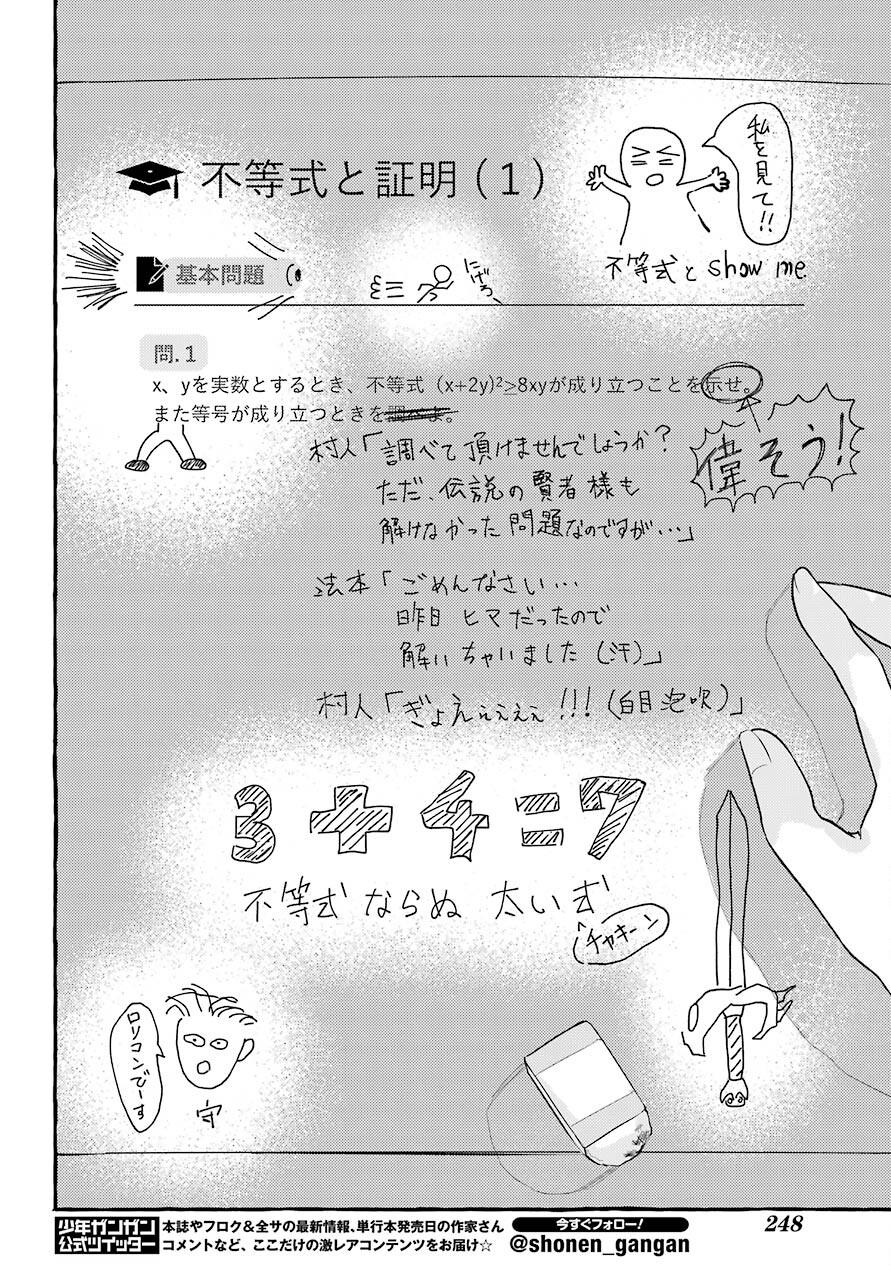 私を見て!!
不等式と証明（1）
不等式と show me
基本問題
にげろ
問.1
x、yを実数とするとき、不等式（x+2y)²≥8xyが成り立つことを示せ。
また等号が成り立つときを調べよ。
偉そう!
村人「調べて頂けませんでしょうか?
ただ、伝説の賢者様も
解けなかった問題なのですが…」
法本「ごめんなさい…
昨日ヒマだったので
解いちゃいました(汗)」
村人「ぎょえぇぇぇぇ!!!(白目泡吹)」
3+4=7
不等式ならぬ 太い式
チャキーン
ロリコンでーす
守
少年ガンガン
公式ツイッター
本誌やフロク＆全サの最新情報、単行本発売日の作家さん
コメントなど、ここだけの激レアコンテンツをお届け☆
今すぐフォロー!
@shonen_gangan
248